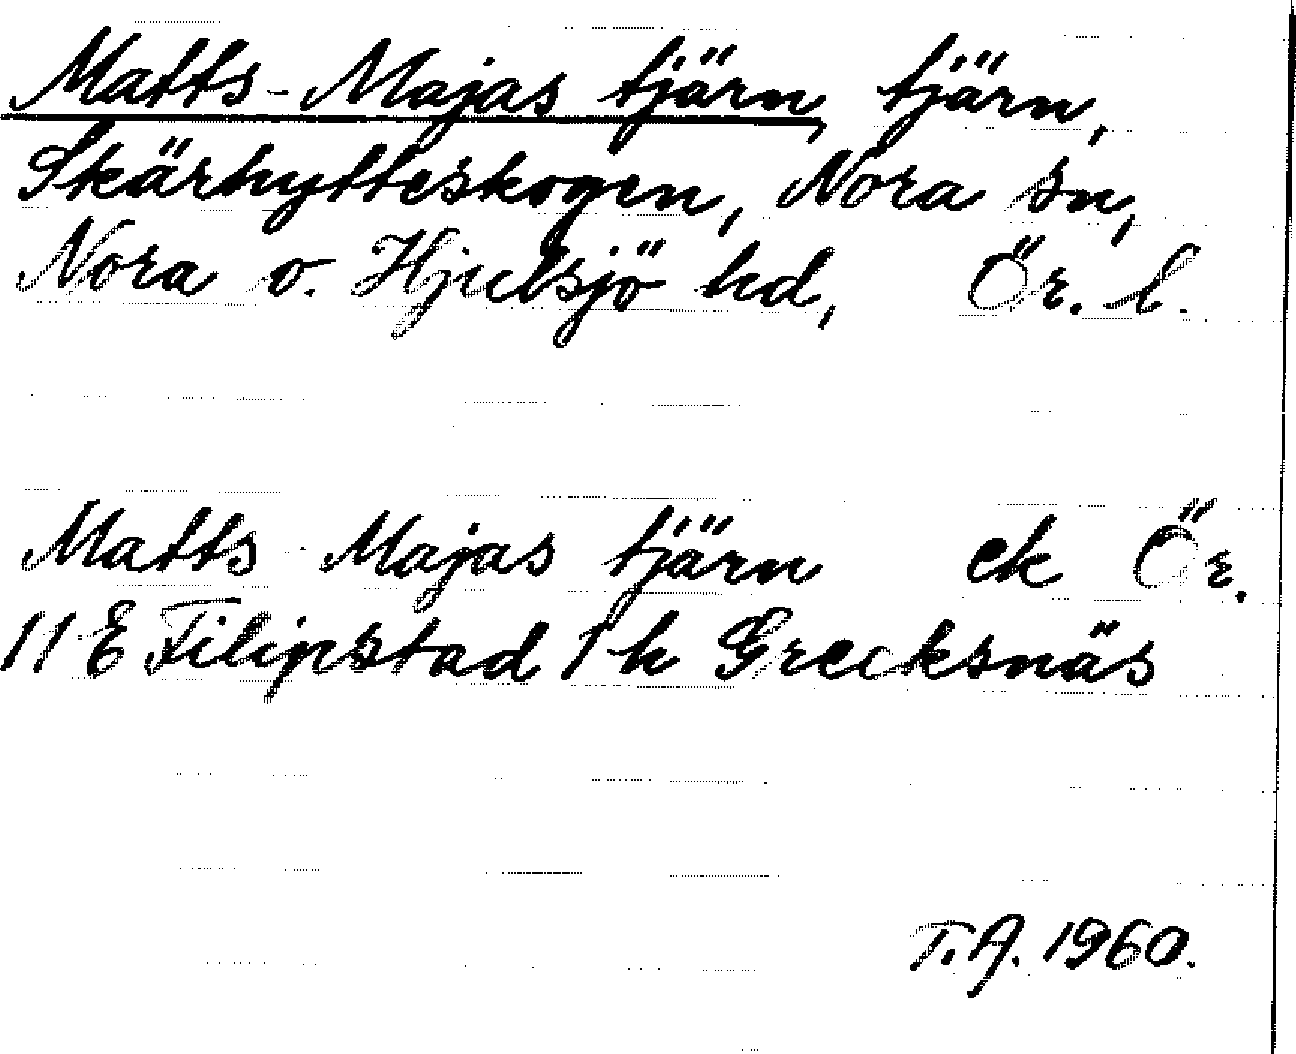 Matts-Majas tjärn, tjärn,
Skärhytteskogen, Nora sn,
Nora o. Hjulsjö hd, Ör. l.
Matts-Majas tjärn ek Ör.
11 E Filipstad 1 h Grecksnäs
T.A. 1960.